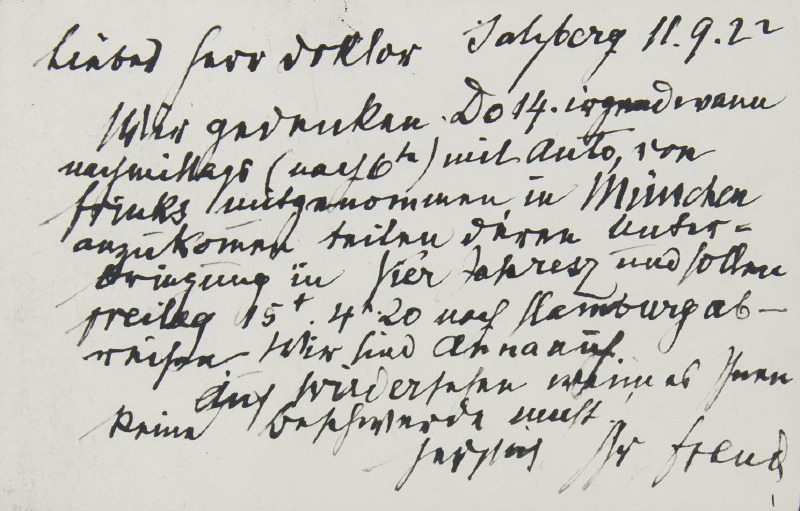 Salzberg 11.9.22
Lieber Herr Doktor
Wir gedenken Do 14. irgendwann
nachmittags (nach 6 h) mit Auto, von
Frinks mitgenommen, in München
anzukomen teilen deren Unter=
bringung in Vier Jahresz und sollen
Freitag 15 t. 4 h 20 nach Hamburg ab-
reisen Wir sind Anna und
Auf Wiedersehen wenn es Ihnen
keine Beschwerde macht
herzlich Ihr Freud